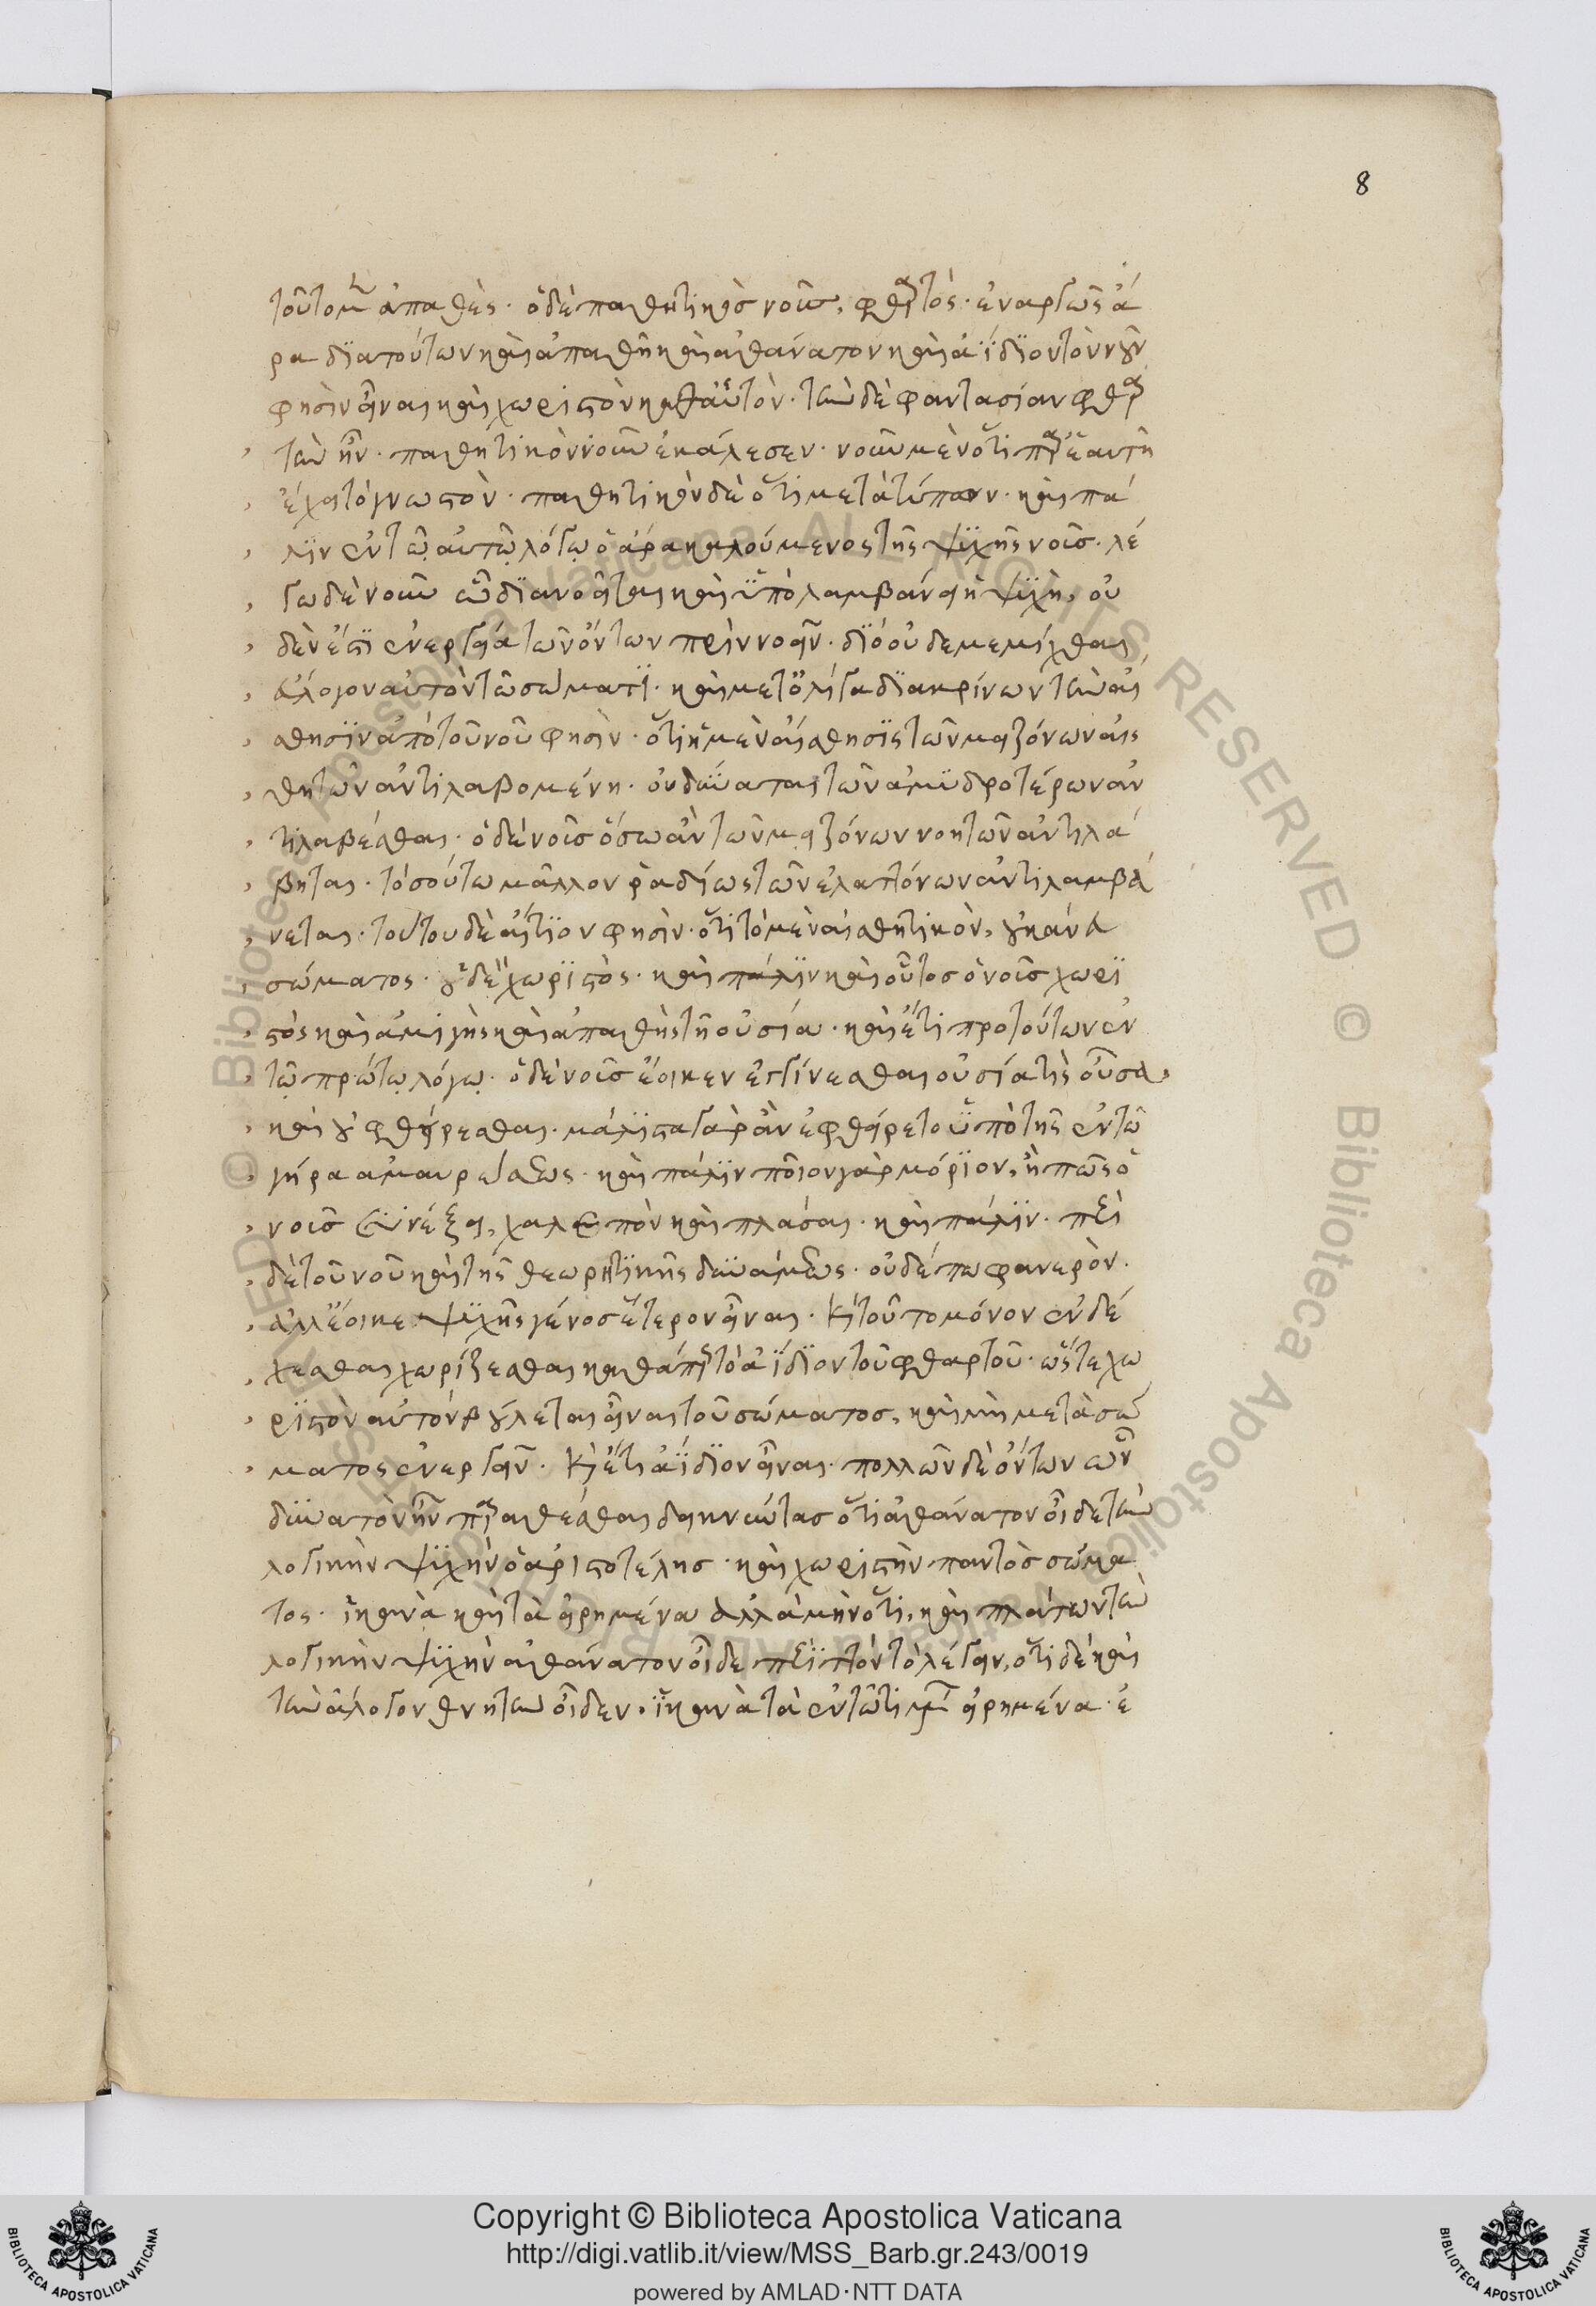 8
τοῦτο μὲν ἀπαθές· ὁ δὲ παθητικὸς νοῦς, φθαρτός· ἐναργῶς ἄ
ρα διὰ τούτων καὶ ἀπαθῆ καὶ ἀθάνατον καὶ ἀΐδιον τὸν νοῦν
φησὶν εἶναι καὶ χωριστὸν καθ' αὑτόν· τὴν δὲ φαντασίαν φθαρ
τὴν ἣν· παθητικὸν νοῦν ἐκάλεσεν· νοῦν μὲν ὅτι παρ' ἑαυτῆ
ἔχει τὸ γνωστὸν· παθητικὸν δὲ ὅτι μετὰ τύπων· καὶ πά
λιν ἐν τῷ αὐτῷ λόγῳ ὁ ἄρα καλούμενος τῆς ψυχῆς νοῦς· λέ
γω δὲ νοῦν ᾧ διανοεῖται καὶ ὑπολαμβάνει ἡ ψυχὴ, οὐ
δὲν ἐστὶ ἐνεργείᾳ τῶν ὄντων πρὶν νοεῖν· διὸ οὐδὲ μεμίχθαι
εὔλογον αὐτὸν τῶ σώματι· καὶ μετ' ὀλίγα διακρίνων τὴν αἴ
σθησιν ἀπὸ τοῦ νοῦ φησὶν· ὅτι ἡ μὲν αἴσθησις τῶν μειζόνων αἰσ
θητῶν ἀντιλαβομένη· οὐ δύναται τῶν ἀμυδροτέρων ἀν
τιλαβέσθαι· ὁ δὲ νοῦς ὅσω ἂν τῶν μειζόνων νοητῶν ἀντιλά
βηται· τοσούτω μᾶλλον ῥαδίως τῶν ἐλαττόνων ἀντιλαμβά
νεται· τούτου δὲ αἴτιον φησὶν· ὅτι τὸ μὲν αἰσθητικὸν, οὐκ ἄνευ
σώματος· ὁ δὲ χωριστὸς· καὶ πάλιν καὶ οὗτος ὁ νοῦς χωρι
στὸς καὶ ἀμιγὴς καὶ ἀπαθὴς τῆ οὐσία· καὶ ἔτι πρὸ τούτων ἐν
τῷ πρώτῳ λόγῳ· ὁ δὲ νοῦς ἔοικεν ἐγγίνεσθαι οὐσία τὶς οὖσα,
καὶ οὐ φθείρεσθαι· μάλιστα γὰρ ἂν ἐφθείρετο ὑπὸ τῆς ἐν τῶ
γήρα ἀμαυρώσεως· καὶ πάλιν ποῖον γὰρ μόριον, ἢ πῶς ὁ
νοῦς συνέξει, χαλεπὸν καὶ πλάσαι· καὶ πάλιν· περὶ
δὲ τοῦ νοῦ καὶ τῆς θεωρητικῆς δυνάμεως· οὐδέπω φανερὸν·
ἀλλ' ἔοικε ψυχῆς γένος ἕτερον εἶναι· καὶ τοῦτο μόνον ἐνδέ
χεσθαι χωρίζεσθαι καθάπερ τὸ ἀΐδιον τοῦ φθαρτοῦ· ὥστε χω
ριστὸν αὐτὸν βούλεται εἶναι τοῦ σώματος, καὶ μὴ μετὰ σώ
ματος ἐνεργεῖν· καὶ ἔτι ἀΐδιον εἶναι· πολλῶν δὲ ὄντων ὧν
δυνατὸν ἦν παραθέσθαι δεικνύντας ὅτι ἀθάνατον οἶδε τὴν
λογικὴν ψυχὴν ὁ ἀριστοτέλης· καὶ χωριστὴν παντὸς σώμα
τος· ἱκανὰ καὶ τὰ εἰρημένα ἀλλὰ μὴν ὅτι, καὶ πλάτων τὴν
λογικὴν ψυχὴν ἀθάνατον οἶδε περιττὸν τὸ λέγειν, ὅτι δὲ καὶ
τὴν ἄλογον θνητὴν οἶδεν· ἱκανὰ τὰ ἐν τῶ τιμαίω εἰρημένα· ἐ
Copyright © Biblioteca Apostolica Vaticana
http://digi.vatlib.it/view/MSS_Barb.gr.243/0019
powered by AMLAD·NTT DATA